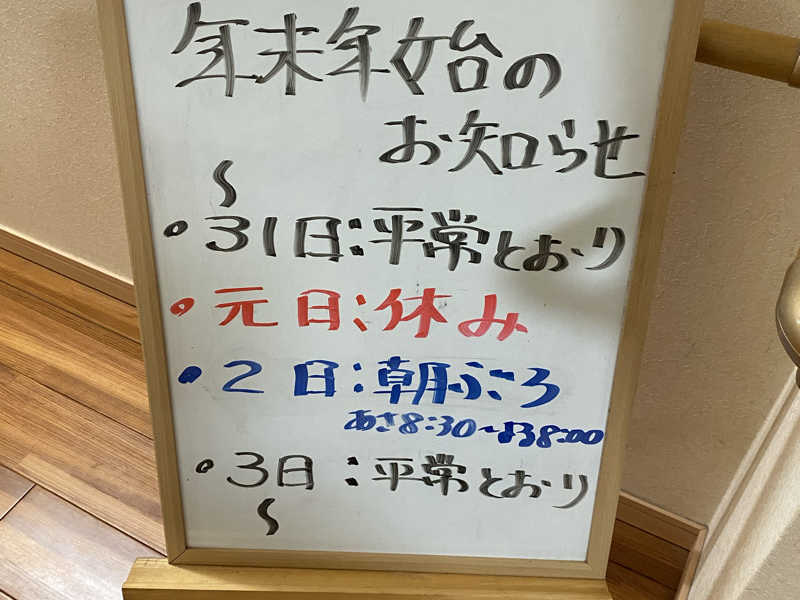 年末年始の
お知らせ
〜
・31日:平常とおり
・元日:休み
・2日:朝ぶろ
あさ8:30~よる8:00
・3日:平常とおり
〜